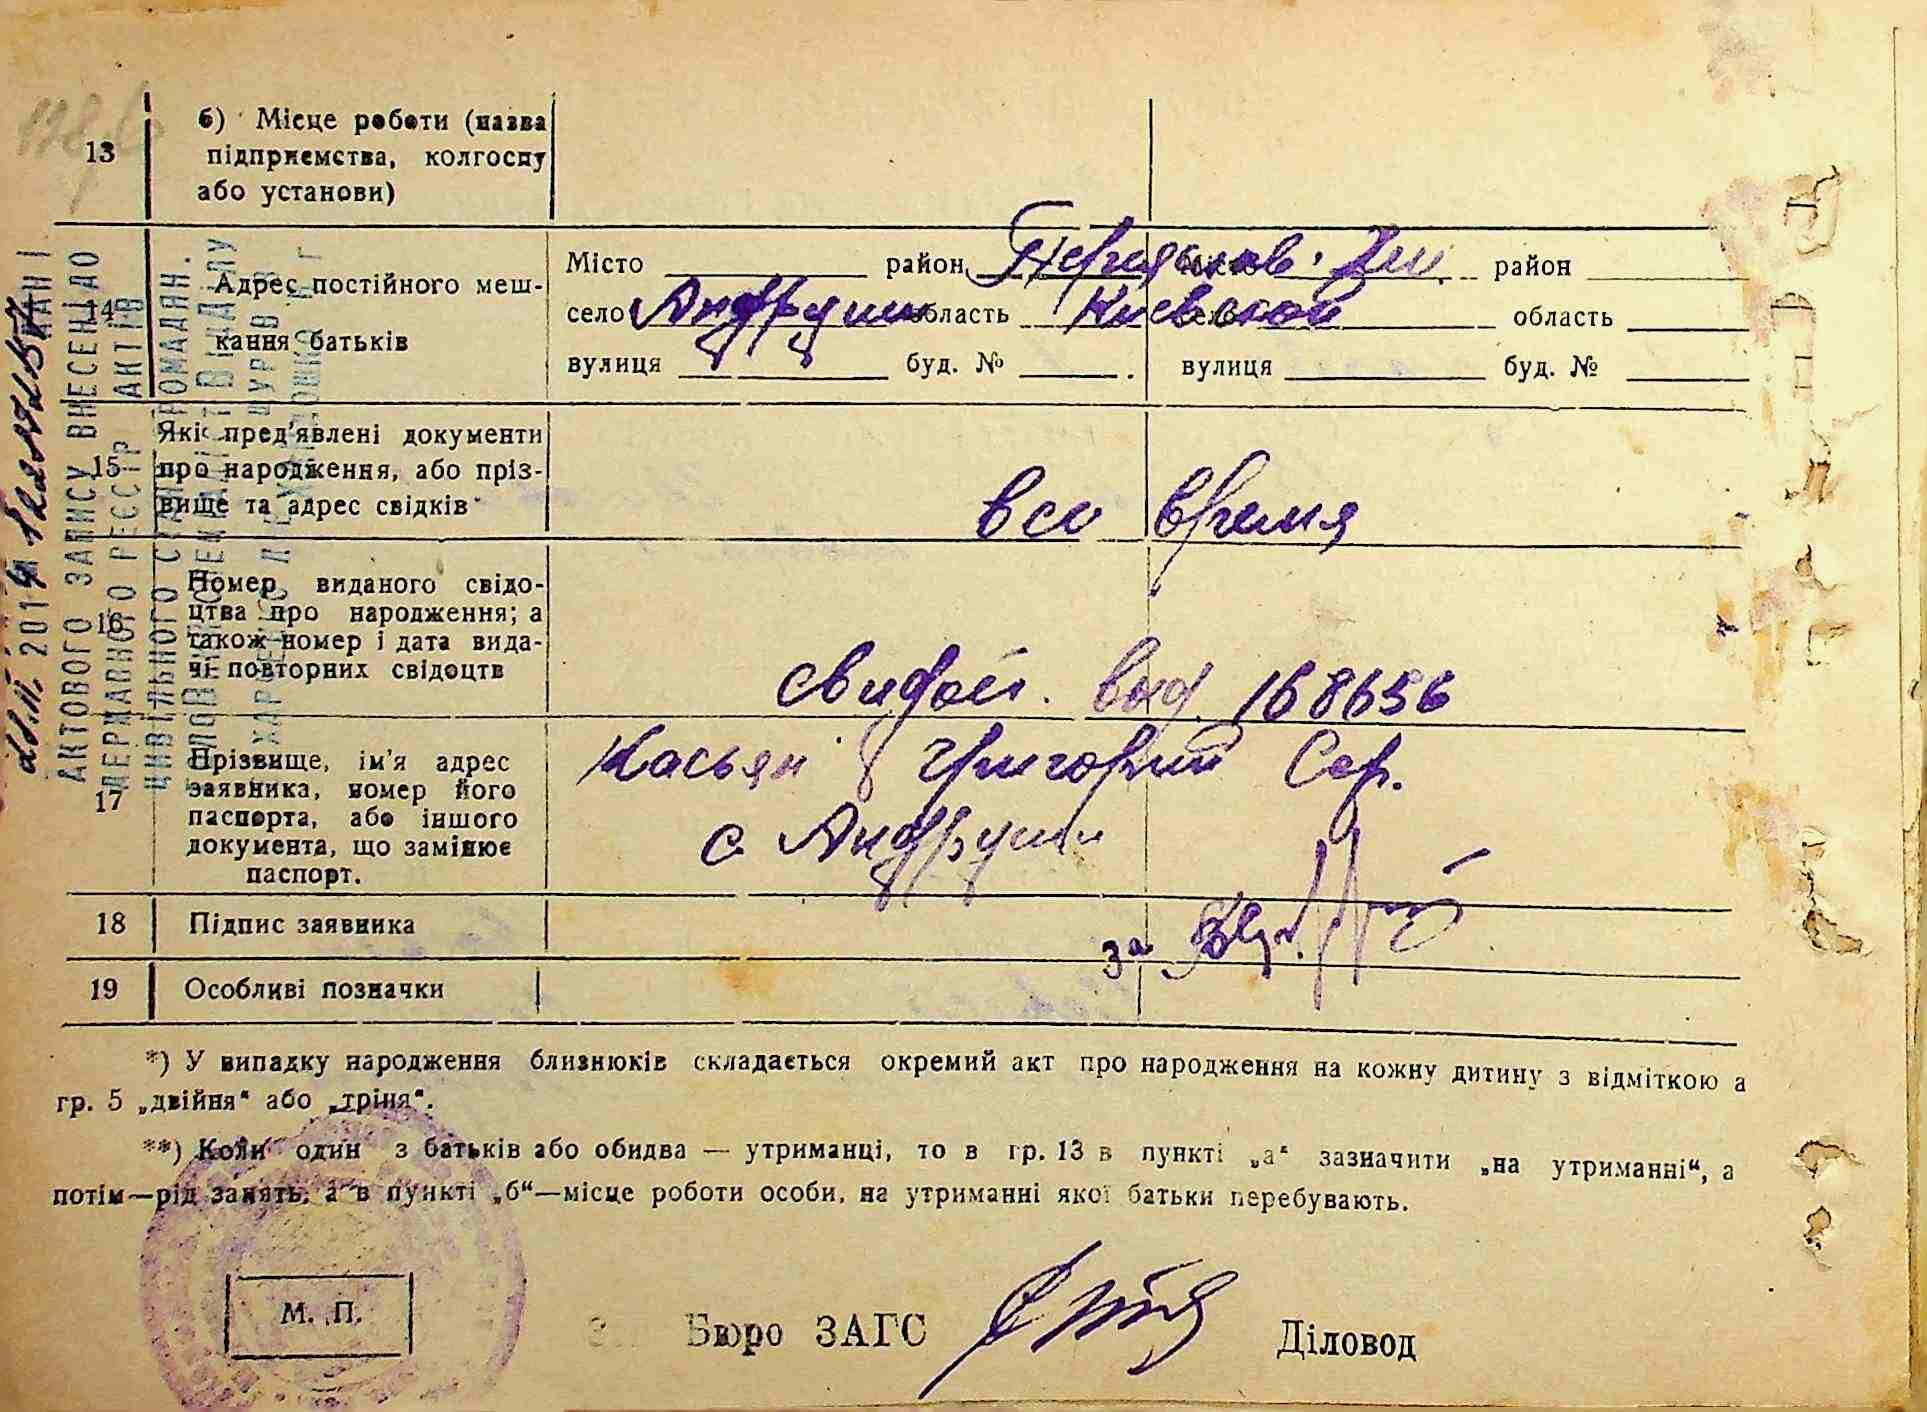 13
б) Місце роботи (назва
підприємства, колгоспу
або установи)
14
Адрес постійного меш-
кання батьків
Місто район район
село Андруши область Киевской область
вулиця буд. № вулиця буд. №
15
Які пред'явлені документи
про народження, або пріз-
вище та адрес свідків
всо время
16
Номер виданого свідо-
цтва про народження; а
також номер і дата вида-
чі повторних свідоцтв
выд 168656
17
Прізвище, ім'я адрес
заявника, номер його
паспорта, або іншого
документа, що замінює
паспорт.
Касьян Григорий Сер.
с Андруши
18
Підпис заявника
за
19
Особливі позначки
*) У випадку народження близнюків складається окремий акт про народження на кожну дитину з відміткою а
гр. 5 „двійня“ або „тріня“.
**) Коли один з батьків або обидва — утриманці, то в гр. 13 в пункті „а“ зазначити „на утриманні“, а
потім—рід занять, а в пункті „б“—місце роботи особи, на утриманні якої батьки перебувають.
М. П.
Бюро ЗАГС Діловод
АКТОВОГО ЗАПИСУ ВНЕСЕНІ ДО
ДЕРЖАВНОГО РЕЄСТР АКТІВ
ЦИВІЛЬНОГО ГРОМАДЯН.